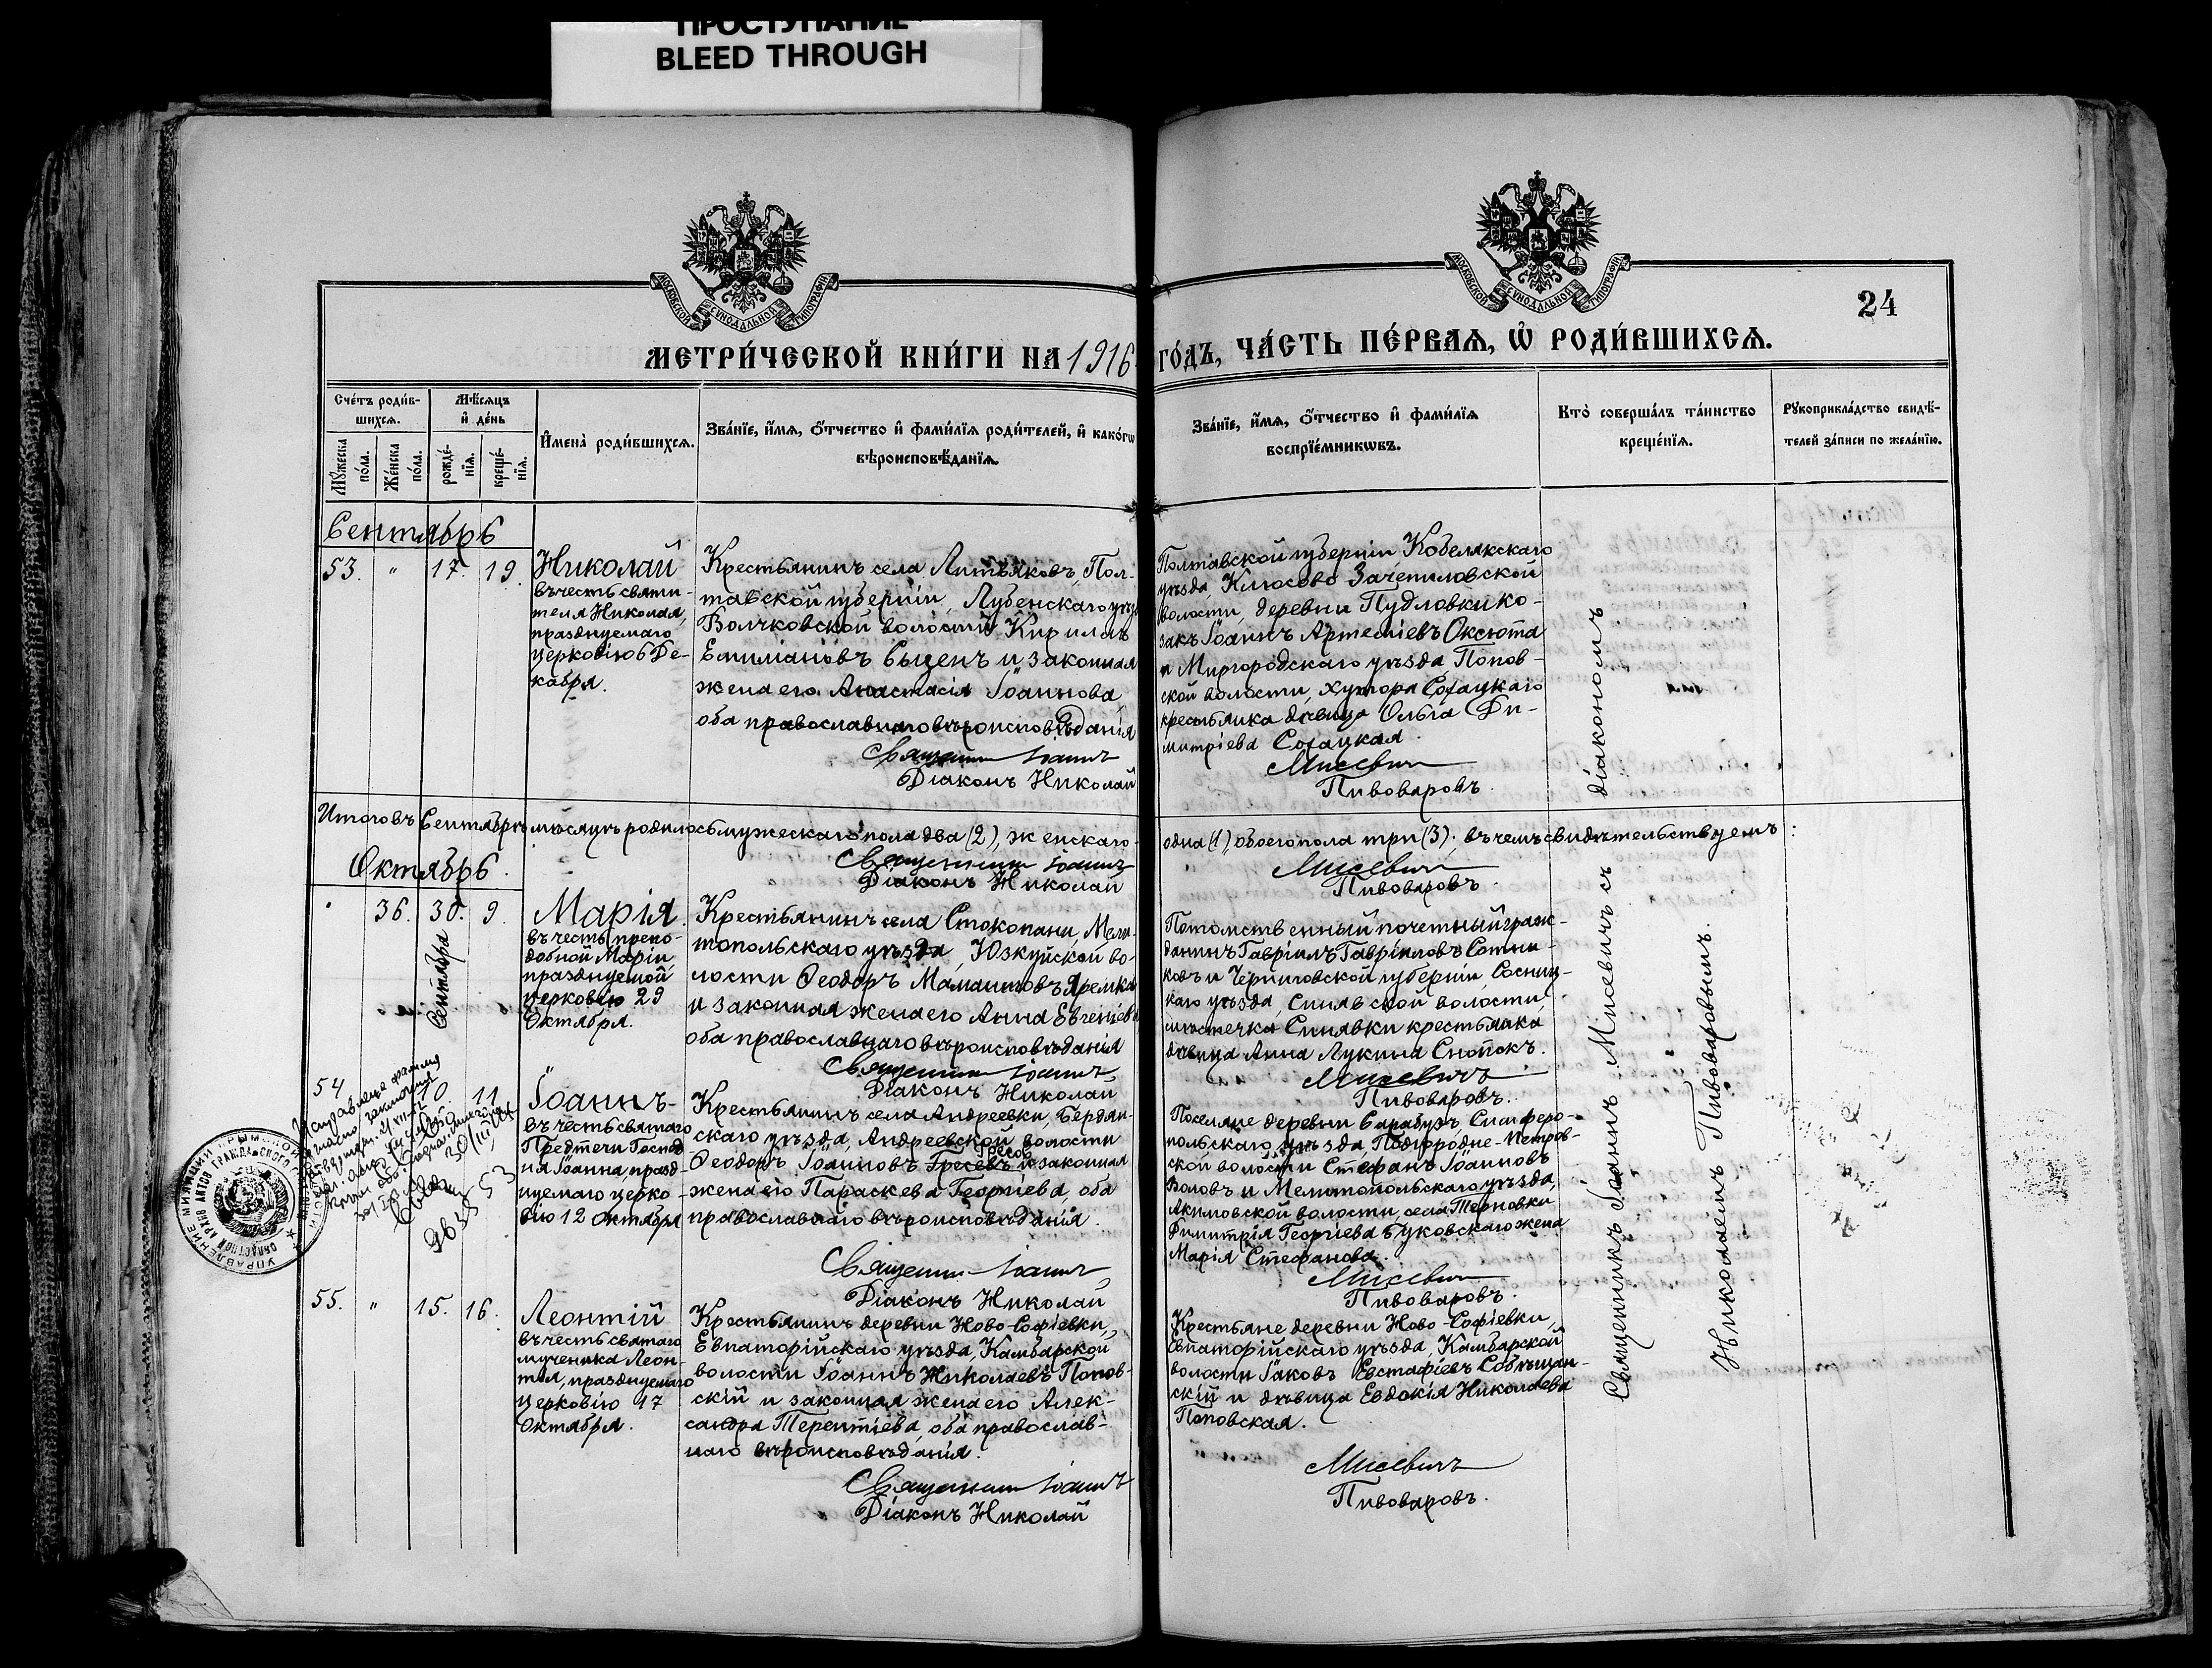 ПРОСТУПАНИЕ
BLEED THROUGH
МОСКОВСКОЙ СѴНОДАЛЬНОЙ ТИПОГРАФІИ
МОСКОВСКОЙ СѴНОДАЛЬНОЙ ТИПОГРАФІИ
24
МЕТРИ́ЧЕСКОЙ КНИ́ГИ НА 1916 ГО́ДЪ, ЧА́СТЬ ПЕ́РВАѦ, Ѡ҆ РОДИ́ВШИХСѦ.
Сче́тъ роди́в-
шихсѧ.
Мꙋ́жеска по́ла.
Же́нска по́ла.
Мѣ́сѧцъ
и҆ де́нь
рожде́-
нїѧ.
креще́-
нїѧ.
И҆мена̀ роди́вшихсѧ.
Зва́нїе, и҆́мѧ, ѻ҆́тчество и҆ фами́лїѧ роди́телей, и҆ како́гѡ
вѣроисповѣ́данїѧ.
Зва́нїе, и҆́мѧ, ѻ҆́тчество и҆ фами́лїѧ
воспрїе́мникѡвъ.
Кто̀ соверша́лъ та́инство
креще́нїѧ.
Рꙋкоприкла́дство свидѣ́-
телей за́писи по жела́нїю.
Сентябрь
53. " 17. 19.
Николай
въ честь святи-
теля Николая,
празднуемаго
церковію 6 Де-
кабря.
Крестьянинъ села Литвяковъ, Пол-
тавской губерніи, Лубенскаго уѣз
Волчковской волости Кириллъ
и законная
жена его Анастасія Іоаннова,
оба православнаго вѣроисповѣданія
Священникъ Іоаннъ
Діаконъ Николай
Полтавской губерніи Кобелякскаго
уѣзда, Клюсово Зачепиловской
волости, деревни Пудловки ко-
закъ Іоаннъ Артеміевъ Оксюта
и Миргородскаго уѣзда Попов-
ской волости, хутора Сохацкаго
крестьянка дѣвица Ольга Ди-
митріева Сохацкая.
Мисевичъ
Пивоваровъ.
Итого въ Сентябрѣ мѣсяцѣ родилось мужескаго пола два (2), женскаго одна (1), обоего пола три (3); въ чемъ свидѣтельствуемъ:
Священникъ Іоаннъ Мисевичъ
Діаконъ Николай Пивоваровъ.
Октябрь.
" 36. 30. 9.
Сентября
Марія
въ честь препо-
добной Маріи,
празднуемой
церковію 29
Октября.
Крестьянинъ села Стокопани, Мели-
топольскаго уѣзда, Юзкуйской во-
лости Ѳеодоръ Мамантовъ Яремка
и законная жена его Анна Евгеніева
оба православнаго вѣроисповѣданія
Священникъ Іоаннъ
Діаконъ Николай
Потомственный почетный граж-
данинъ Гавріилъ Гавріиловъ Сотни-
ковъ и Черниговской губерніи, Сосниц-
каго уѣзда, Синявской волости
мѣстечка Синявки крестьянка
дѣвица Анна Лукина Снопокъ.
Мисевичъ
Пивоваровъ.
54 10. 11.
Іоаннъ
въ честь святаго
Предтечи Господ
ня Іоанна, празд-
нуемаго церко-
вію 12 Октября
Крестьянинъ села Андреевки, Бердян-
скаго уѣзда, Андреевской волости
Гресов
Ѳеодоръ Іоанновъ Гресевъ и законная
жена его Параскева Георгіева, оба
православнаго вѣроисповѣданія.
Священникъ Іоаннъ
Діаконъ Николай
Поселяне деревни Сарабузъ, Симферо-
польскаго уѣзда, Подгородне-Петров-
ской волости Стефанъ Іоанновъ
Воловъ и Мелитопольскаго уѣзда,
Акимовской волости, села Терновки
Димитрія Георгіева Буковскаго жена
Марія Стефанова.
Мисевичъ
Пивоваровъ.
Исправлена фамилия
согласно заключения
УПРАВЛЕНИЕ МИЛИЦИИ КРЫМСКОЙ ОБЛАСТИ
ОБЛАСТНОЙ АРХИВ АКТОВ ГРАЖДАНСКОГО
55. " 15. 16.
Леонтій
въ честь святаго
мученика Леон-
тія, празднуемаго
церковію 17
Октября.
Крестьянинъ деревни Ново-Софіевки,
Евпаторійскаго уѣзда, Камбарской
волости Іоаннъ Николаевъ Попов-
скій и законная жена его Алек-
сандра Терентіева, оба православ-
наго вѣроисповѣданія.
Священникъ Іоаннъ
Діаконъ Николай
Крестьяне деревни Ново-Софіевки,
Евпаторійскаго уѣзда, Камбарской
волости Іаковъ Евстафіевъ Собѣщан-
скій и дѣвица Евдокія Николаева
Поповская.
Мисевичъ
Пивоваровъ.
Священникъ Іоаннъ Мисевичъ съ діакономъ
Николаемъ Пивоваровымъ.